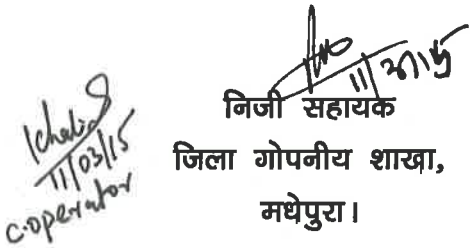 11/3/15
निजी सहायक
जिला गोपनीय शाखा,
मधेपुरा।
Khalid
11/03/15
C.operator